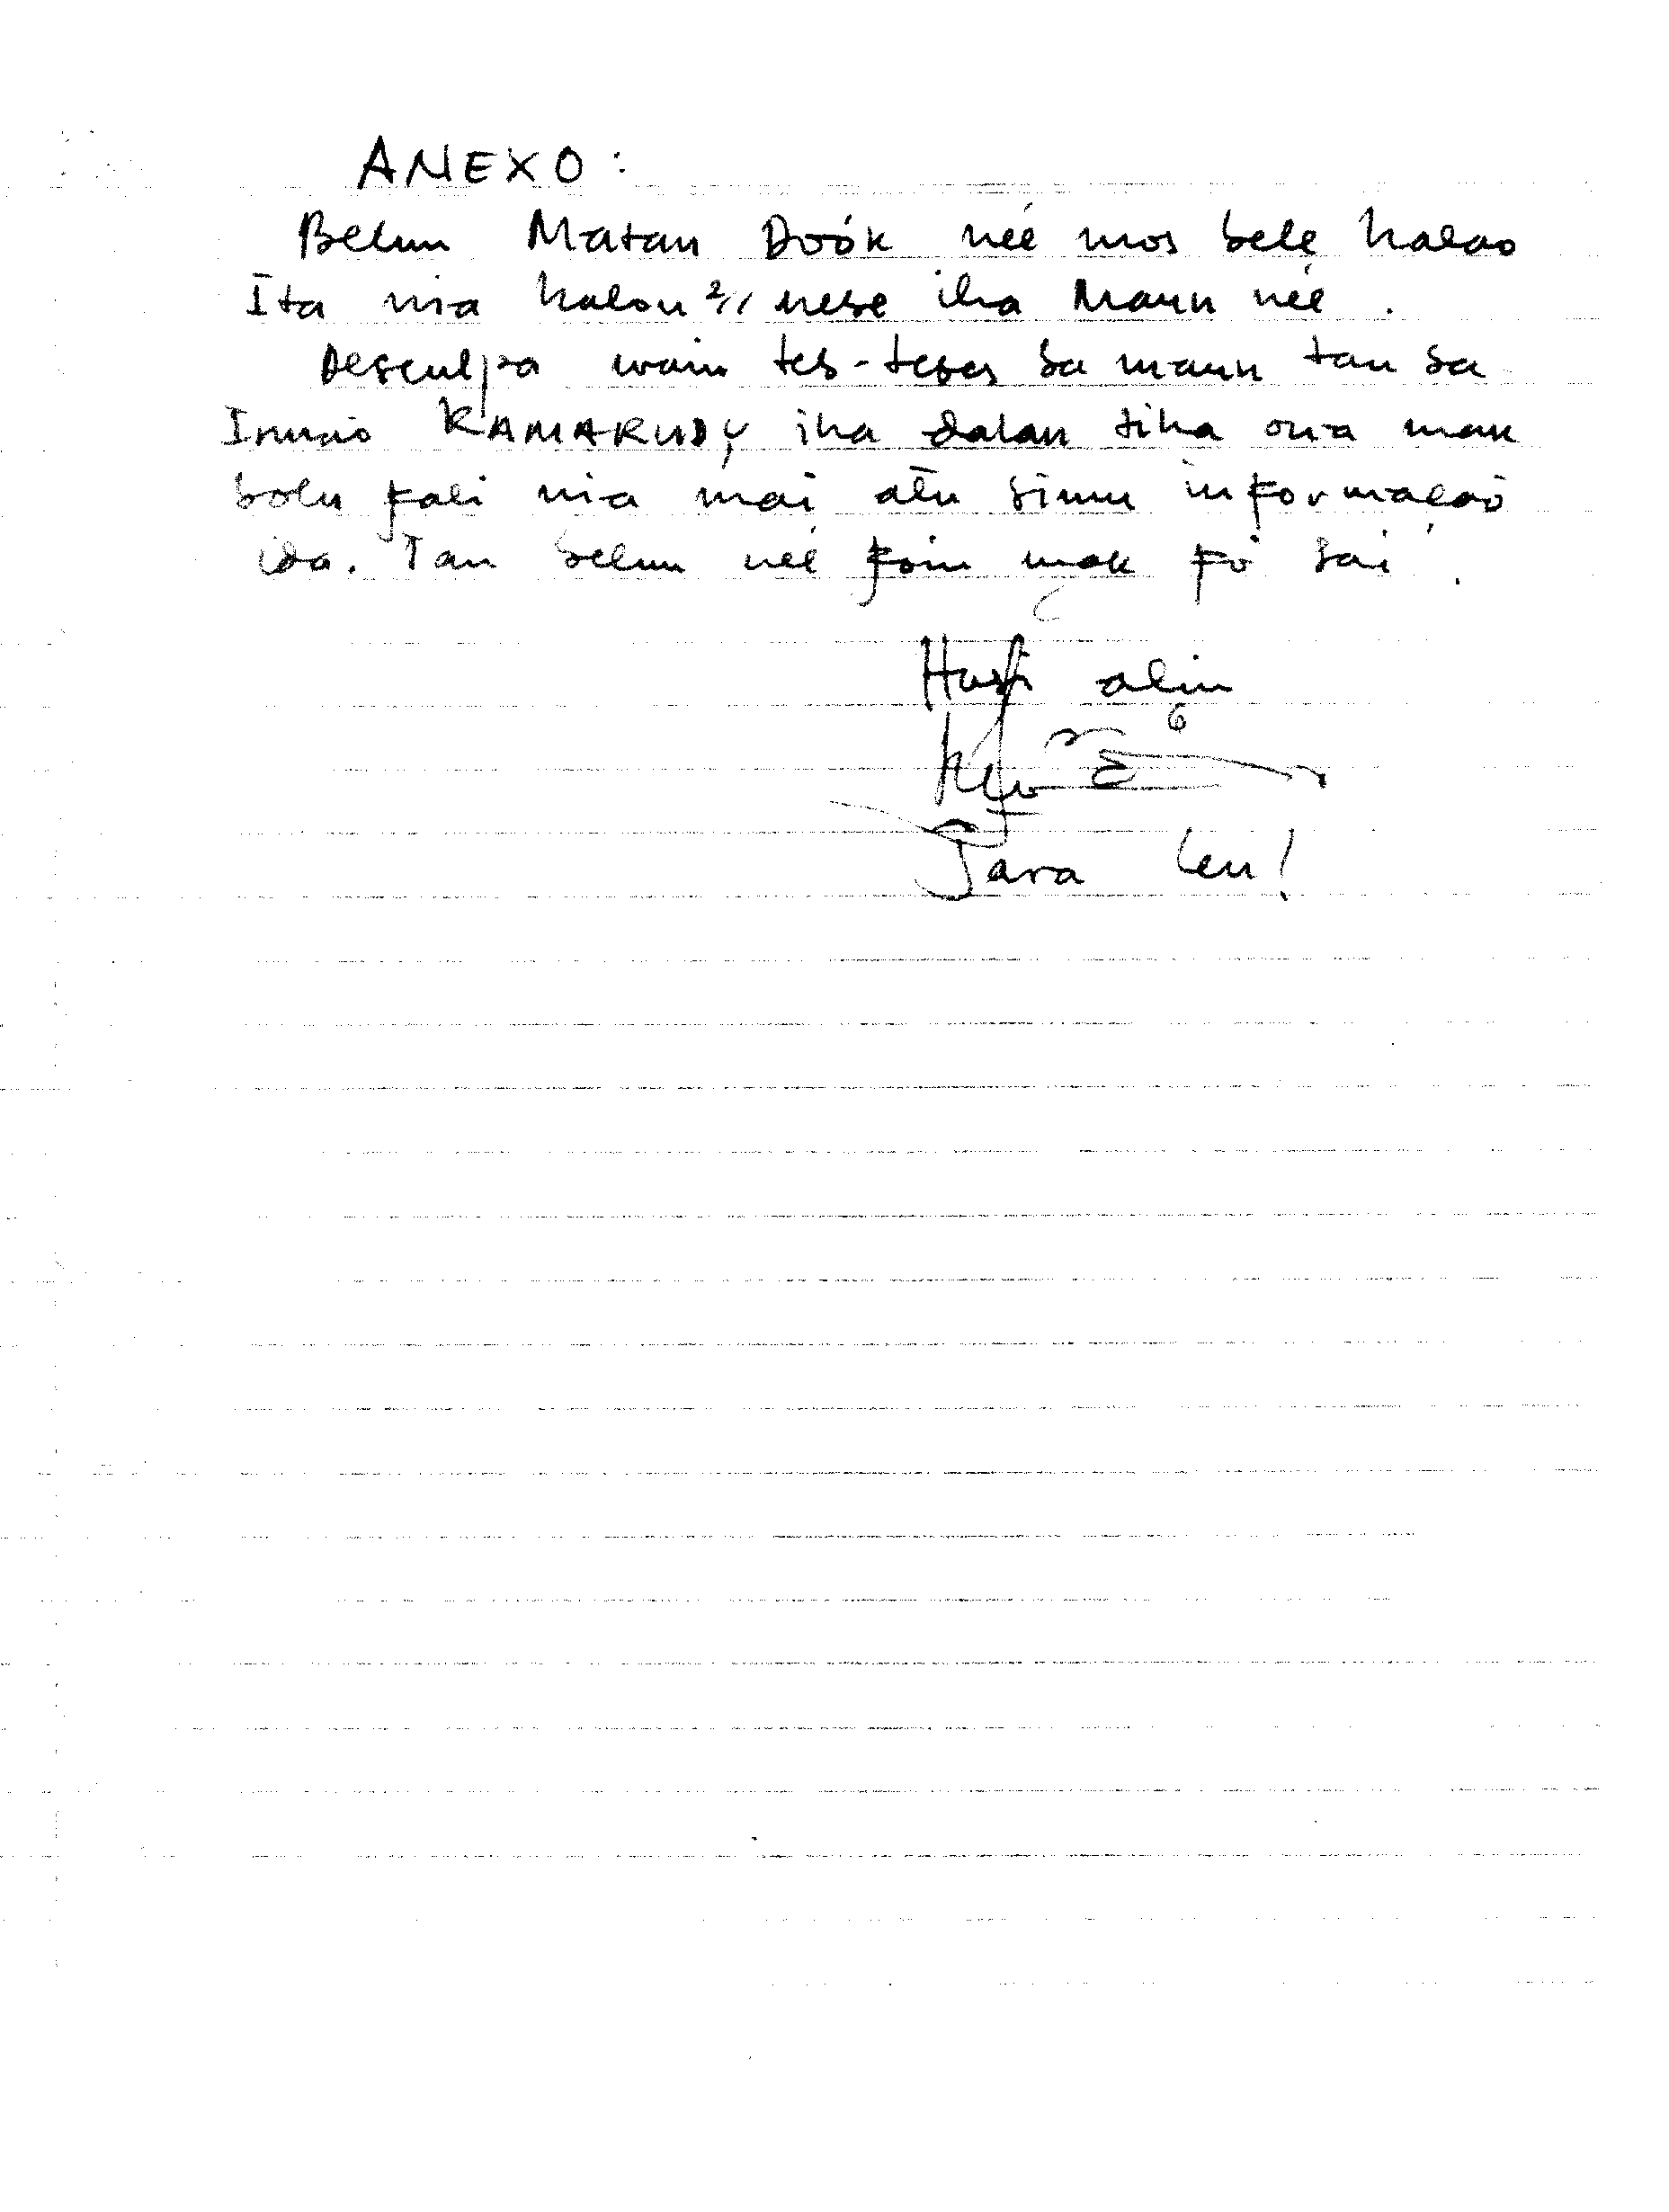 ANEXO:
Belun Matan Doók neé mos bele halao
Ita nia halou 2// nebe iha Maun neé.
Desculpa wain teb-tebes ba maun tan ba
Irmao KAMARUDY iha dalan tiha ona mak
bolu fali nia mai atu simu informacao
ida. Tan belun neé foin mak fó sai.
Husi alin
Sara Leu!